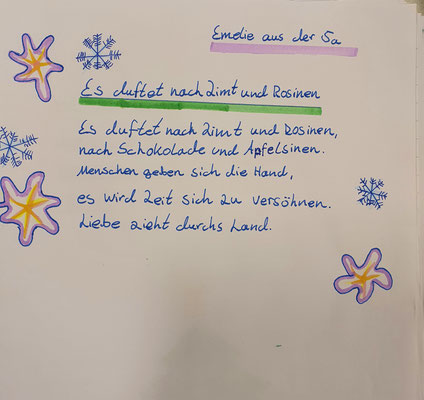 Emelie aus der 5a
Es duftet nach Zimt und Rosinen
Es duftet nach Zimt und Rosinen,
nach Schokolade und Apfelsinen.
Menschen geben sich die Hand,
es wird Zeit sich zu versöhnen.
Liebe zieht durchs Land.